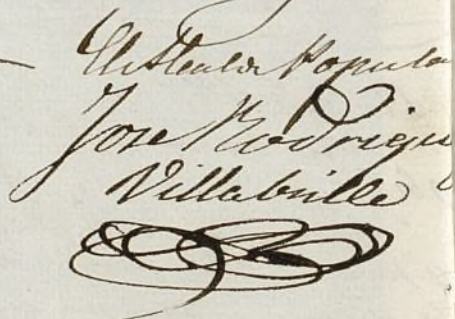 El Alcalde Popula
Jose Rodrigue
Villabrille